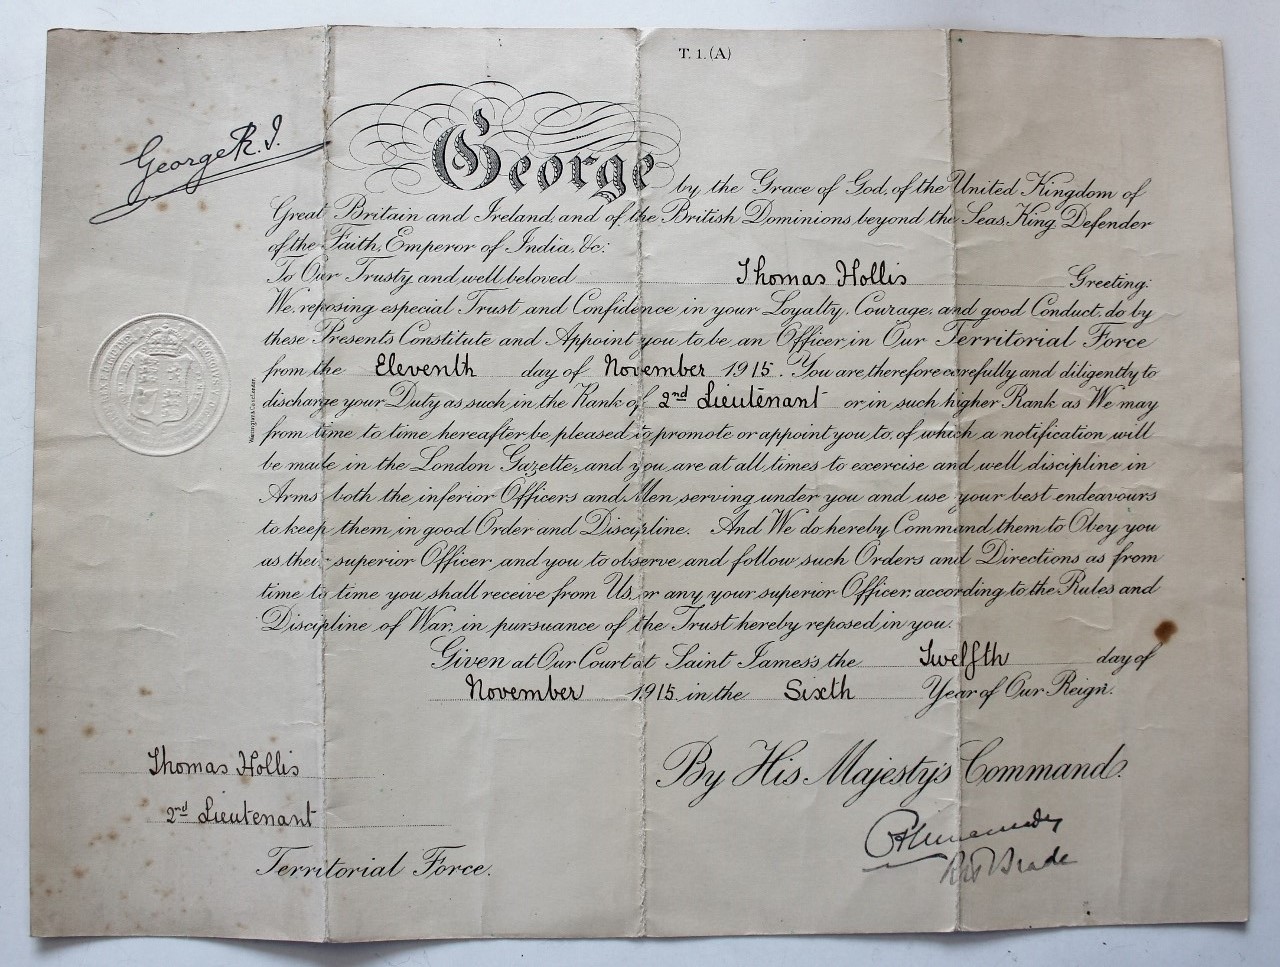 T. 1. (A)
George R. I.
George by the Grace of God, of the United Kingdom of
Great Britain and Ireland, and of the British Dominions beyond the Seas, King, Defender
of the Faith, Emperor of India, &c:
To Our Trusty and well beloved Thomas Hollis Greeting:
We, reposing especial Trust and Confidence in your Loyalty, Courage, and good Conduct, do by
these Presents Constitute and Appoint you to be an Officer in Our Territorial Force
from the Eleventh day of November 1915. You are therefore carefully and diligently to
discharge your Duty as such in the Rank of 2nd Lieutenant or in such higher Rank as We may
from time to time hereafter be pleased to promote or appoint you to, of which a notification will
be made in the London Gazette, and you are at all times to exercise and well discipline in
Arms both the inferior Officers and Men serving under you and use your best endeavours
to keep them in good Order and Discipline. And We do hereby Command them to Obey you
as their superior Officer, and you to observe and follow such Orders and Directions as from
time to time you shall receive from Us, or any your superior Officer, according to the Rules and
Discipline of War, in pursuance of the Trust hereby reposed in you.
Given at Our Court at Saint James's the Twelfth day of
November 1915 in the Sixth Year of Our Reign.
By His Majesty's Command.
Thomas Hollis
2nd Lieutenant
Territorial Force.